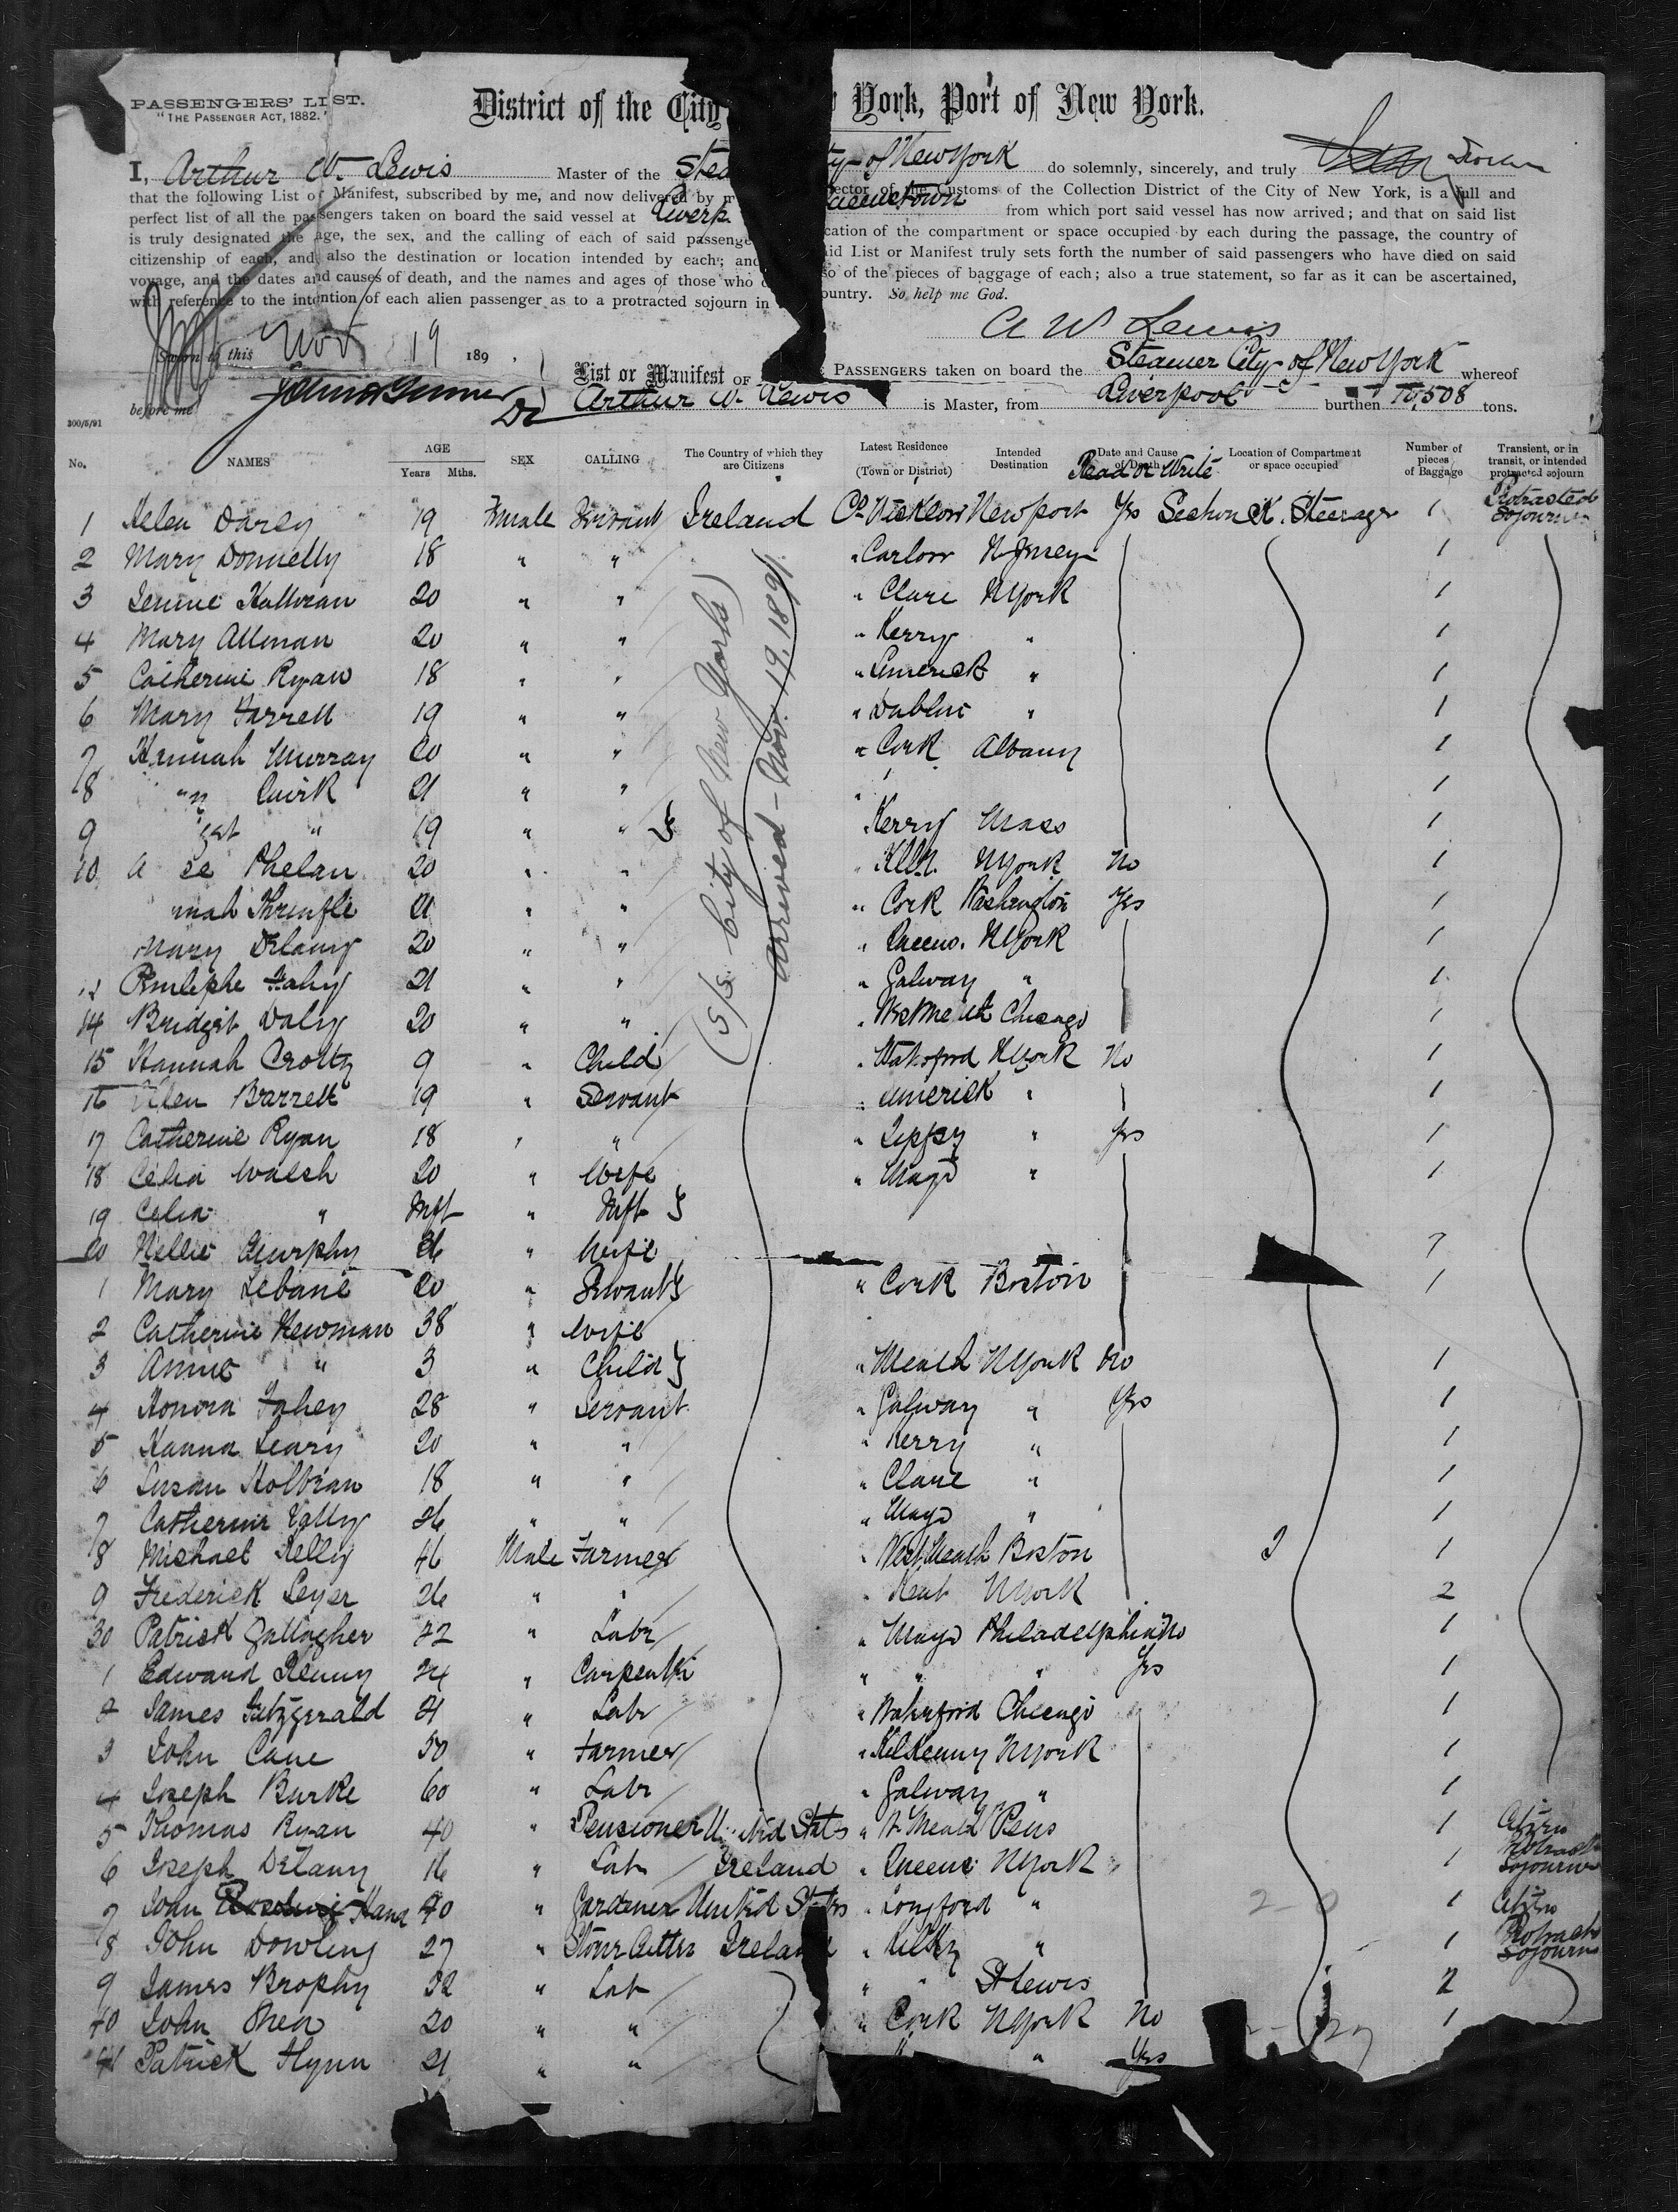 PASSENGERS' LIST.
"THE PASSENGER ACT, 1882."
District of the City York, Port of New York.
I, Arthur W. Lewis Master of the Stea ty of New York do solemnly, sincerely, and truly Swear
that the following List or Manifest, subscribed by me, and now delivered by m ector of the Customs of the Collection District of the City of New York, is a full and
perfect list of all the passengers taken on board the said vessel at Liverp ueenstown from which port said vessel has now arrived; and that on said list
is truly designated the age, the sex, and the calling of each of said passenge cation of the compartment or space occupied by each during the passage, the country of
citizenship of each, and also the destination or location intended by each; and aid List or Manifest truly sets forth the number of said passengers who have died on said
voyage, and the dates and causes of death, and the names and ages of those who so of the pieces of baggage of each; also a true statement, so far as it can be ascertained,
with reference to the intention of each alien passenger as to a protracted sojourn in ountry. So help me God.
A W Lewis
Sworn to this Nov 19 189
before me
List or Manifest OF PASSENGERS taken on board the Steamer City of New York whereof
Arthur W. Lewis is Master, from Liverpool burthen 10,508 tons.
300/5/91
No. NAMES AGE Years Mths. SEX CALLING The Country of which they are Citizens Latest Residence (Town or District) Intended Destination Date and Cause of Death Read or Write Location of Compartment or space occupied Number of pieces of Baggage Transient, or in transit, or intended protracted sojourn
(S/S City of New York)
arrived - Nov. 19, 1891
1 Helen Darcy 19 Female Servant Ireland Co Wicklow Newport Yes Section K. Steerage 1 Protracted Sojourn
2 Mary Donnelly 18 " " " Carlow N Jersey 1
3 Jennie 20 " " " Clare N York 1
4 Mary Allman 20 " " " Kerry " 1
5 Catherine Ryan 18 " " " Limerick " 1
6 Mary Farrell 19 " " " Dublin " 1
7 Hannah Murray 20 " " " Cork Albany 1
8 " Quirk 21 " " " 1
9 get " 19 " " " Kerry Mass 1
10 A ce Phelan 20 " " " N York No 1
nnah 21 " " " Cork Washington Yes 1
Mary Delany 20 " " " Queens. N York 1
Fahy 21 " " " Galway " 1
14 Bridget Daly 20 " " " WestMeath Chicago 1
15 Hannah Crotty 9 " Child " Waterford N York No 1
16 Ellen Barrett 19 " Servant " Limerick " 1
17 Catherine Ryan 18 " " " Tippy " Yes 1
18 Celia Walsh 20 " Wife " Mayo " 1
19 Celia " Inft " Inft
20 Nellie Murphy 26 " Wife
1 Mary Lebane 20 " Servant " Cork Boston 1
2 Catherine Newman 38 " Wife
3 Annie " 3 " Child " Meath N York No 1
4 Honora Fahey 28 " Servant " Galway " Yes 1
5 Hanna Leary 20 " " " Kerry " 1
6 Susan 18 " " " Clare " 1
7 Catherine 26 " " " Mayo " 1
8 Michael Kelly 46 Male Farmer " WestMeath Boston 1
9 Frederick 26 " " " Kent N York 2
30 Patrick Gallagher 42 " Labr " Mayo Philadelphia No 1
1 Edward 24 " Carpenter " " " Yes 1
2 James Fitzgerald 21 " Labr " Waterford Chicago 1
3 John Cane 50 " Farmer " Kilkenny N York 1
4 Joseph Burke 60 " Labr " Galway " 1
5 Thomas Ryan 40 " Pensioner United States " W Meath 1
6 Joseph Delany 16 " Lab Ireland " Queens N York 1 Protracted Sojourn
7 John 40 " Gardener United States " Longford " 1
8 John Dowling 27 " Stone Cutter Ireland " " 1 Protracted Sojourn
9 James Brophy 32 " Lab " " St Lewis 2
40 John Shea 20 " " " Cork N York No 1
41 Patrick Flynn 21 " " " " Yes